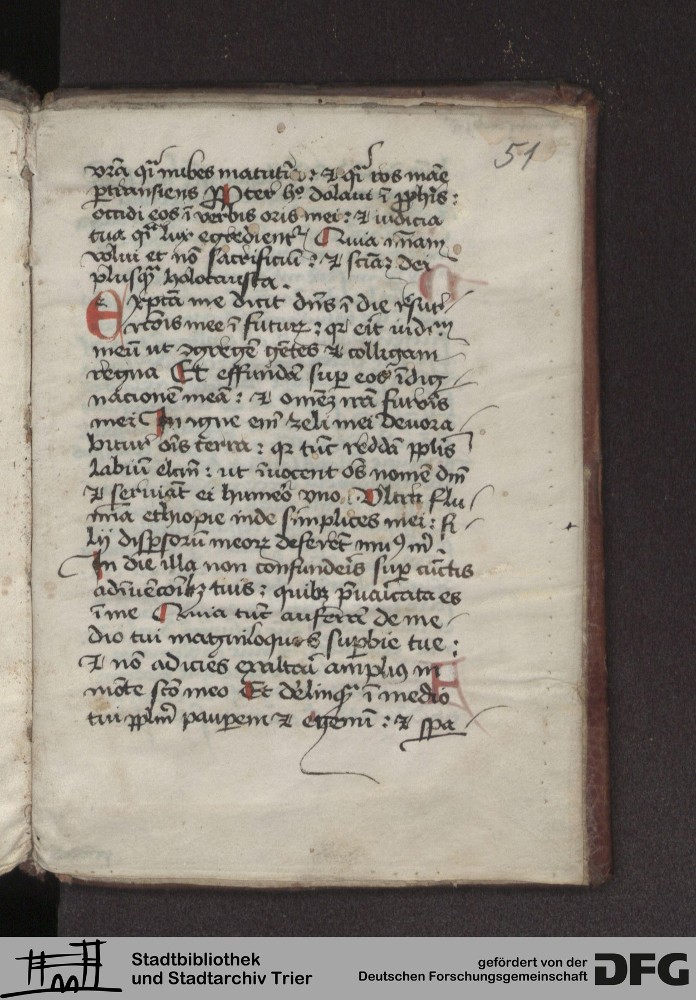 51
vrā qi nubes matuti : ⁊ qi ros mae
ptransiens Ppter hͦ dolaui ī pphis :
occidi eos ī verbis oris mei : ⁊ iudicia
tua qi lux egredient Quia mīam
volui et nō sacrificiū : ⁊ sciaꝫ dei
plusq holocausta .
Expcta me dicit dn̄s ī die rsur
rcōis mee ī futurꝝ : qr eiͭ iudm
meū ut ꝯgregē gētes ⁊ colligam
regna Et effundā sup eos īdig
nacionē meā : ⁊ omēꝫ irā furoris
mei In igne em̄ zeli mei devora
bitur ois terra : qr tūc reddā pplis
labiū elcm̄ : ut īuocent oēs nomē dm̄
⁊ seruiāt ei humeͦ vno Vltra flu
mīa ethiopie inde simplices mei : fi
lij disꝑsorū meorꝝ deferēt munꝰ m
In die illa non confundeis sup cūctis
adīuēcoībꝫ tuis : quibꝫ pͣuaricata es
ī me Quia tūc auferā de me
dio tui magniloquos supbie tue :
⁊ nō adicies exaltari ampliꝰ in
mōte scō meo Et delinqm ī medio
tui pplm̄ pauperem ⁊ egenū : ⁊ spa
Stadtbibliothek
und Stadtarchiv Trier
gefördert von der
Deutschen Forschungsgemeinschaft
DFG